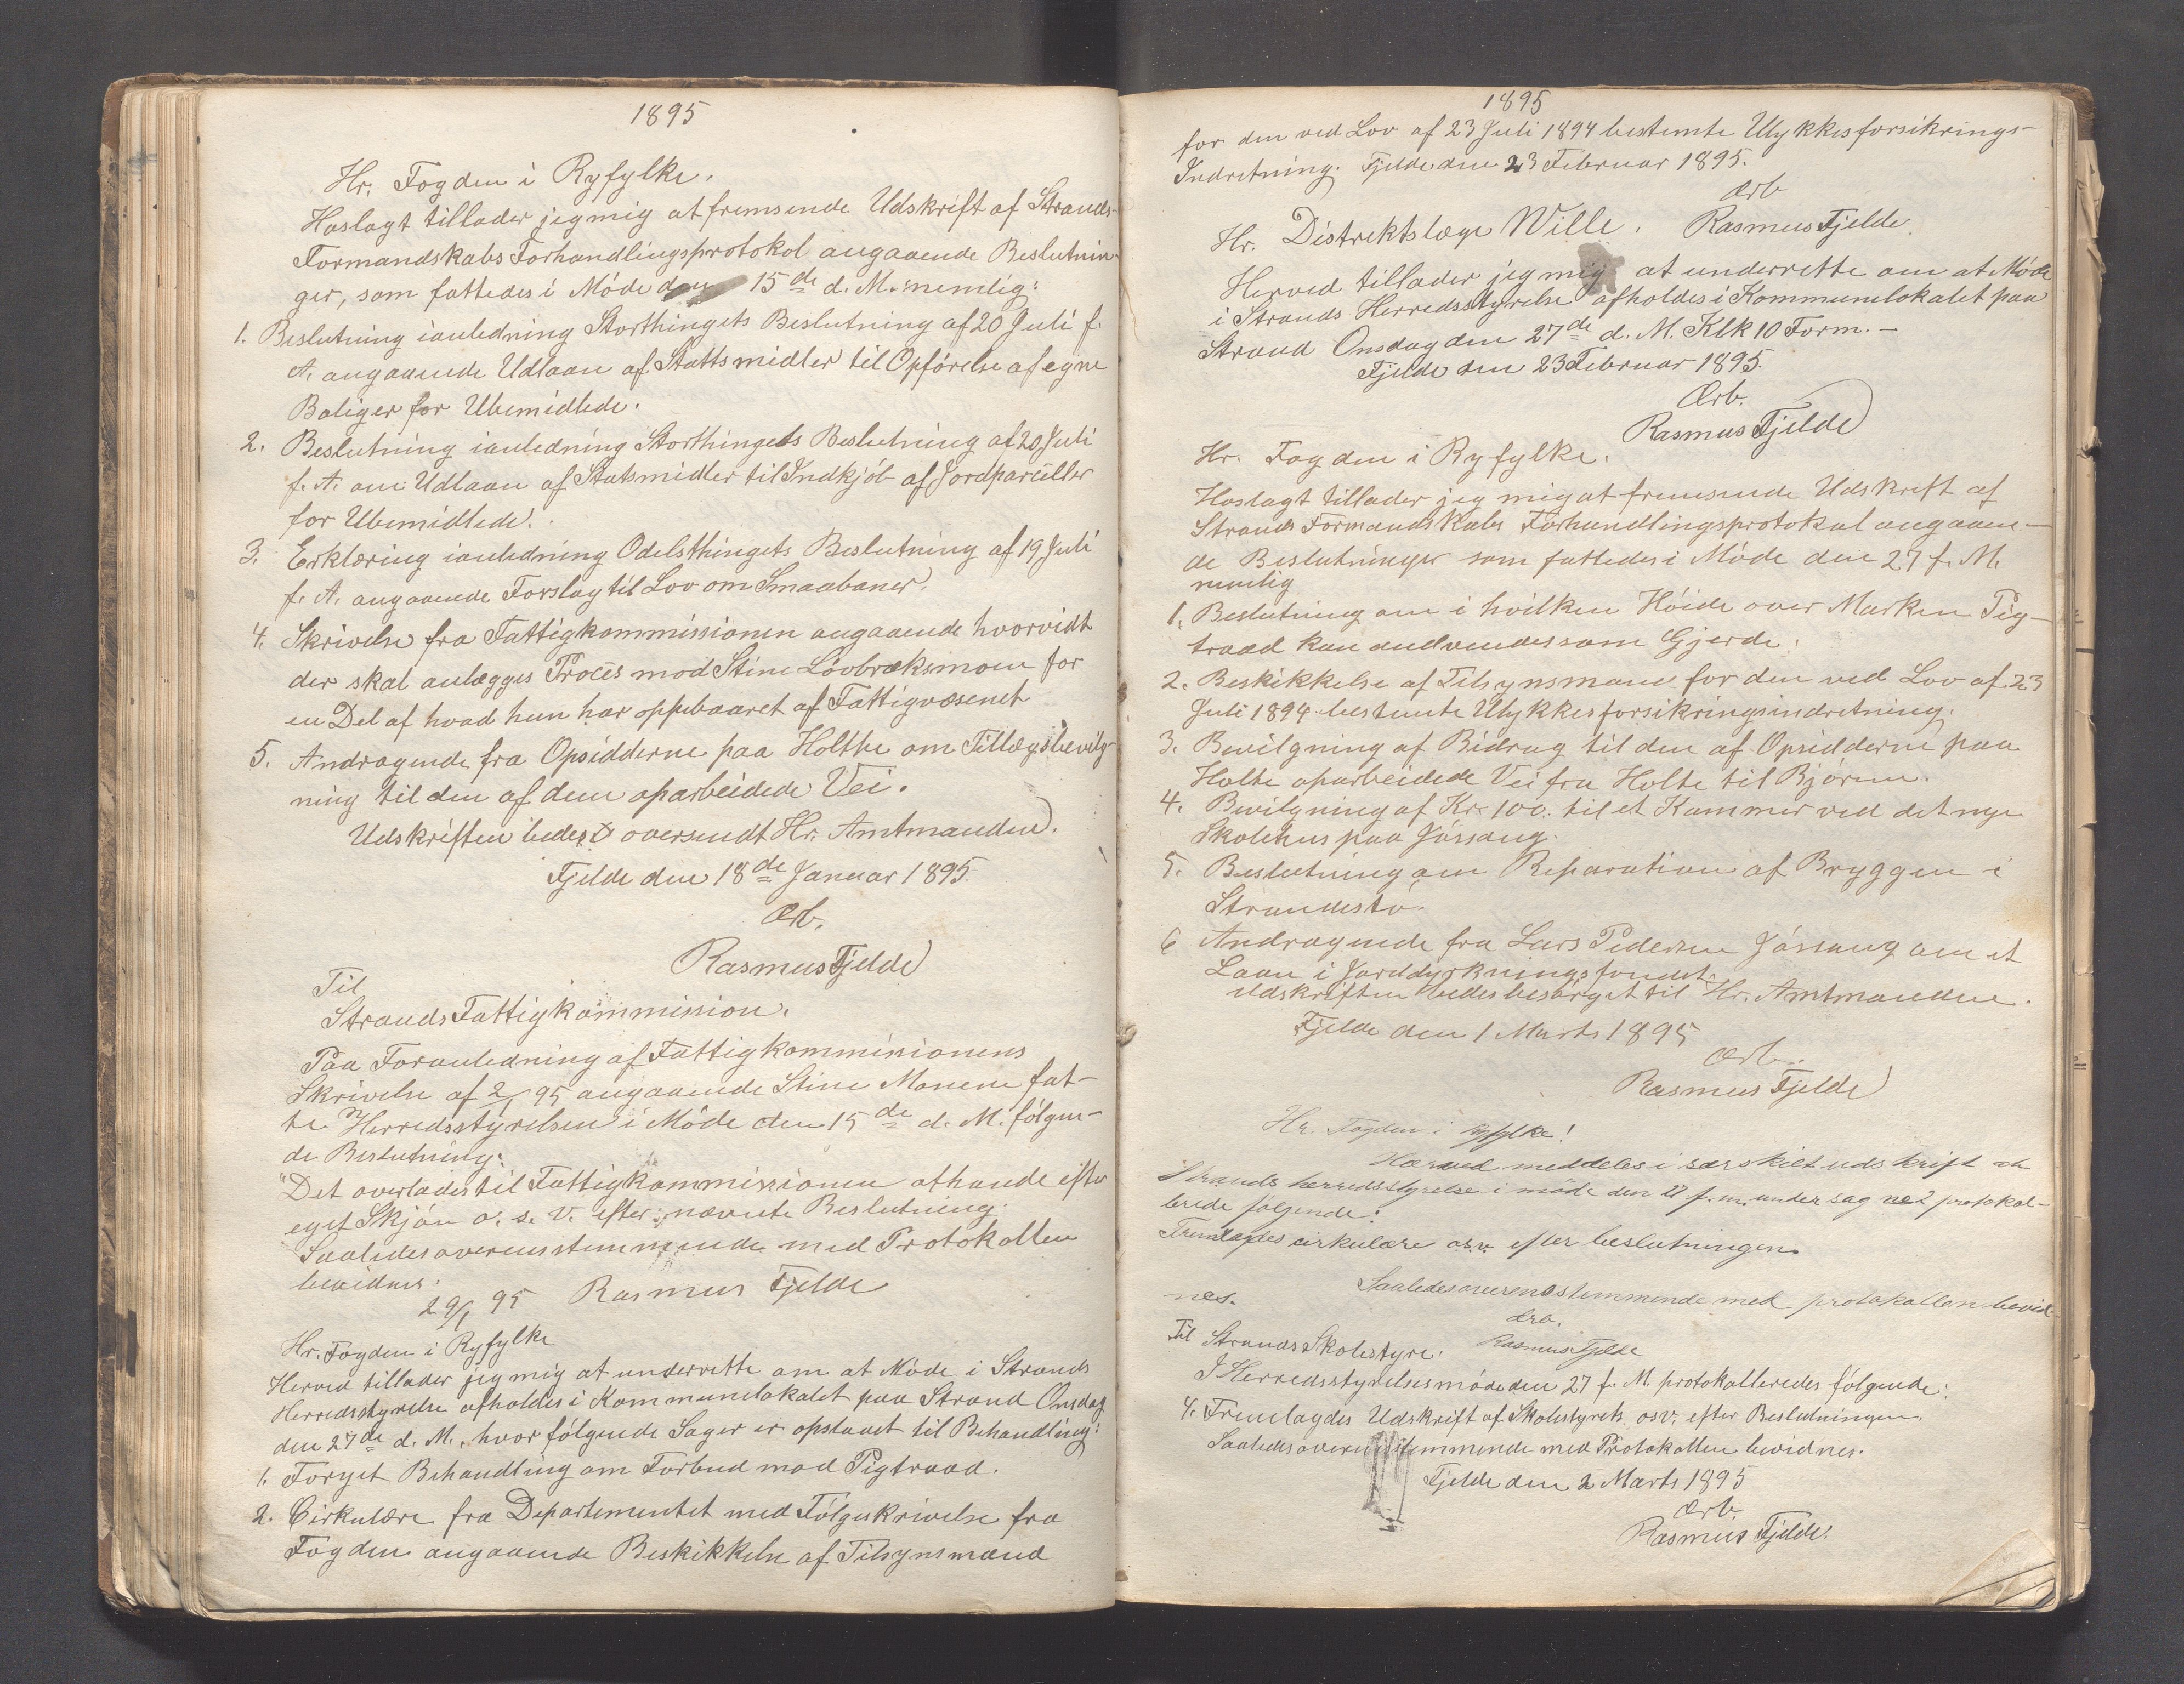 1895
Hr. Fogden i Ryfylke.
Hoslagt tillader jeg mig at fremsende Udskrift af Strands-
Formandskabs Forhandlingsprotokol angaaende Beslutnin-
ger, som fattedes i Möde den 15de d. M. nemlig:
1. Beslutning ianledning Storthingets Beslutning af 20 Juli f.
A. angaaende Udlaan af Stattsmidler til Opförelse af egne
Boliger for Ubemidlede.
2. Beslutning ianledning Storthingets Beslutning af 20 Juli
f. A. om Udlaan af Statsmidler til Indkjöb af Jordparceller
for Ubemidlede.
3. Erklæring ianledning Odelsthingets Beslutning af 19 Juli
f. A. angaaende Forslag til Lov om Smaabaner.
4. Skrivelse fra Fattigkommissionen angaaende hvorvidt
der skal anlægges Proces mod Stine Lövbræksmoen for
en Del af hvad hun har oppebaaret af Fattigvæsenet
5. Andragende fra Opsidderne paa Holthe om Tillægsbevilg-
ning til den af dem oparbeidede Vei.
Udskriften bedes oversendt Hr. Amtmanden.
Fjelde den 18de Januar 1895.
Ærb.
Rasmus Fjelde
Til
Strands Fattigkommission.
Paa Foranledning af Fattigkommissionens
Skrivelse af 2/1 95 angaaende Stine Monene fat-
te Herredsstyrelsen i Möde den 15de d. M. fölgen-
de Beslutning:
"Det overlades til Fattigkommissionen at handle efter
eget Skjön o. s. v. efter nævnte Beslutning.
Saaledes overensstemmende med Protokollen
bevidnes.
29/1 95 Rasmus Fjelde
Hr. Fogden i Ryfylke
Herved tillader jeg mig at underrette om at Möde i Strands
Herredsstyrelse afholdes i Kommunelokalet paa Strand Onsdag
den 27de d. M., hvor fölgende Sager er opstaaet til Behandling:
1. Forget Behandling om Forbud mod Pigtraad.
2. Cirkulære fra Departementet med Fölgeskrivelse fra
Fogden angaaende Beskikkelse af Tilsynsmænd
1895
for den ved Lov af 23 Juli 1894 bestemte Ulykkesforsikrings-
Indretning. Fjelde den 23 Februar 1895.
Ærb
Hr. Distriktslæge Wille. Rasmus Fjelde.
Herved tillader jeg mig at underrette om at Möde
i Strands Herredsstyrelse afholdes i Kommunelokalet paa
Strand Onsdag den 27de d. M. Klk 10 Form. —
Fjelde den 23 Februar 1895.
Ærb.
Rasmus Fjelde
Hr. Fogden i Ryfylke.
Hoslagt tillader jeg mig at fremsende Udskrift af
Strands Formandskabs Forhandlingsprotokol angaaen-
de Beslutninger som fattedes i Möde den 27 f. M.
nemlig
1. Beslutning om i hvilken Höide over Marken Pig-
traad kan andvendes som Gjerde.
2. Beskikkelse af Tilsynsmænd for den ved Lov af 23
Juli 1894 bestemte Ulykkesforsikringsindretning.
3. Bevilgning af Bidrag til den af Opsidderne paa
Holte oparbeidede Vei fra Holte til Björen.
4. Bevilgning af Kr. 100. til et Kammer ved det nye
Skolehus paa Jössang.
5. Beslutning om Reparation af Bryggen i
Strandestö.
6 Andragende fra Lars Pedersen Jössang om et
Laan i Jorddyrkningsfondet.
Udskriften bedes besörget til Hr. Amtmanden.
Fjelde den 1 Marts 1895
Ærb.
Rasmus Fjelde
Hr. Fogden i Ryfylke!
Herved meddeles i særskilt udskrift at
Strands herredsstyrelse i möde den 27 f. m. under sag no 2 protokol-
lerede fölgende:
Fremlagdes cirkulære o.s.v. efter beslutningen.
Saaledes overensstemmende med protokollen bevid-
nes.
Ærb.
Til Strands Skolestyre. Rasmus Fjelde
I Herredsstyrelsesmöde den 27 f. M. protokolleredes fölgende:
4. Fremlagdes Udskrift af Skolestyrets osv. efter Beslutningen.
Saaledes overensstemmende med Protokollen bevidnes.
Fjelde den 2 Marts 1895
Ærb.
Rasmus Fjelde.